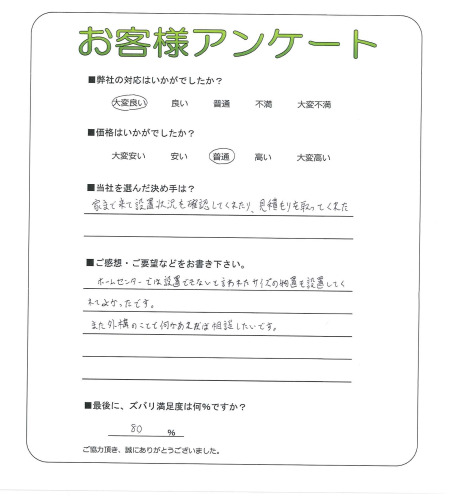 お客様アンケート
■弊社の対応はいかがでしたか？
大変良い 良い 普通 不満 大変不満
■価格はいかがでしたか？
大変安い 安い 普通 高い 大変高い
■当社を選んだ決め手は？
家まで来て設置状況を確認してくれたり、見積もりを取ってくれた
■ご感想・ご要望などをお書き下さい。
ホームセンターでは設置できないと言われたサイズの物置を設置してく
れてよかったです。
また外構のことで何かあれば相談したいです。
■最後に、ズバリ満足度は何%ですか？
80 %
ご協力頂き、誠にありがとうございました。